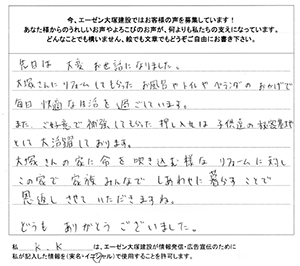 今、エーゼン大塚建設ではお客様の声を募集しています！
あなた様からのうれしいお声やよろこびのお声が、何より私たちの支えになっています。
どんなことでも構いません。絵でも文章でもどうぞご自由にお書き下さい。
先日は 大変 お世話になりました。
大塚さんに リフォームしてもらった お風呂やトイレや ベランダの おかげで
毎日 快適な生活を 過ごしています。
また、ご好意で 補強してもらった 押し入れは 子供達の 秘密基地
として 大活躍しております。
大塚さんの 家に命を 吹き込む様な リフォームに対し
この家で 家族 みんなで しあわせに 暮らすことで
恩返し させて いただきますね。
どうも ありがとう ございました。
私 K.K は、エーゼン大塚建設が情報発信・広告宣伝のために
私が記入した情報を（実名・イニシャル）で使用することを許可します。